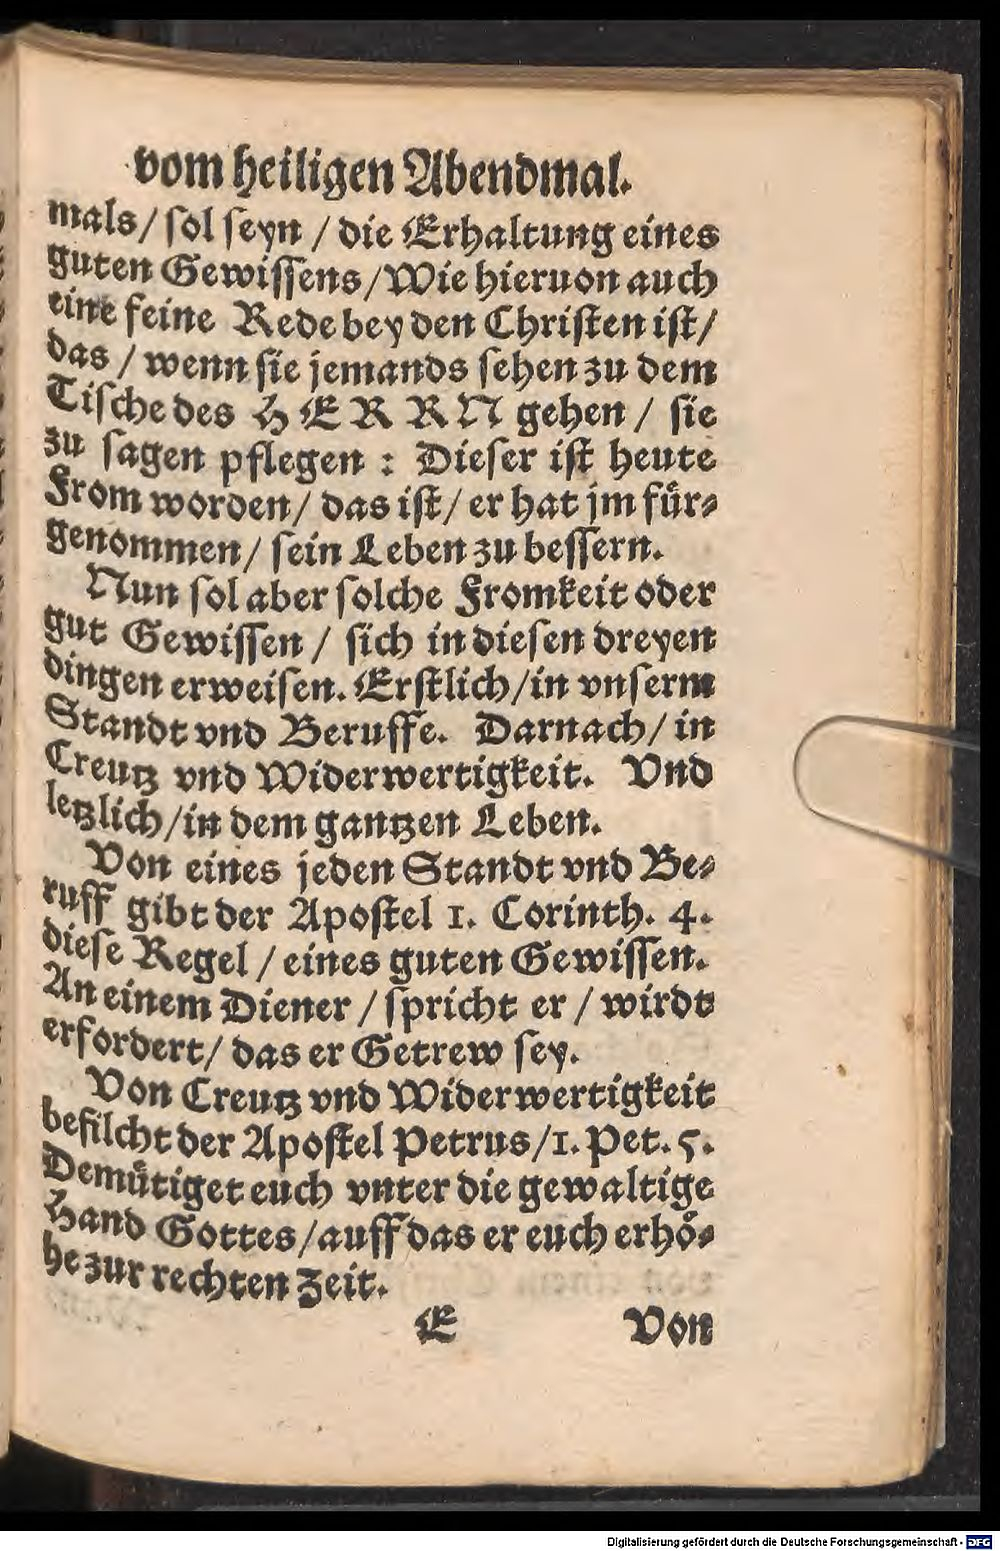 vom heiligen Abendmal.
mals/ sol seyn / die Erhaltung eines
guten Gewissens/Wie hieruon auch
eine feine Rede bey den Christen ist/
das / wenn sie jemands sehen zu dem
Tische des HERRN gehen / sie
zu sagen pflegen : Dieser ist heute
From worden/ das ist/ er hat jm für⸗
genommen/ sein Leben zu bessern.
Nun sol aber solche Fromkeit oder
gut Gewissen / sich in diesen dreyen
dingen erweisen. Erstlich/in vnserm
Standt vnd Beruffe. Darnach/ in
Creutz vnd Widerwertigkeit. Vnd
letzlich/in dem gantzen Leben.
Von eines jeden Standt vnd Be⸗
ruff gibt der Apostel 1. Corinth. 4.
diese Regel / eines guten Gewissen.
An einem Diener / spricht er / wirdt
erfordert/ das er Getrew sey.
Von Creutz vnd Widerwertigkeit
befilcht der Apostel Petrus/1. Pet. 5.
Demütiget euch vnter die gewaltige
Hand Gottes/auff das er euch erhö⸗
he zur rechten Zeit.
E Von
Digitalisierung gefördert durch die Deutsche Forschungsgemeinschaft - DFG